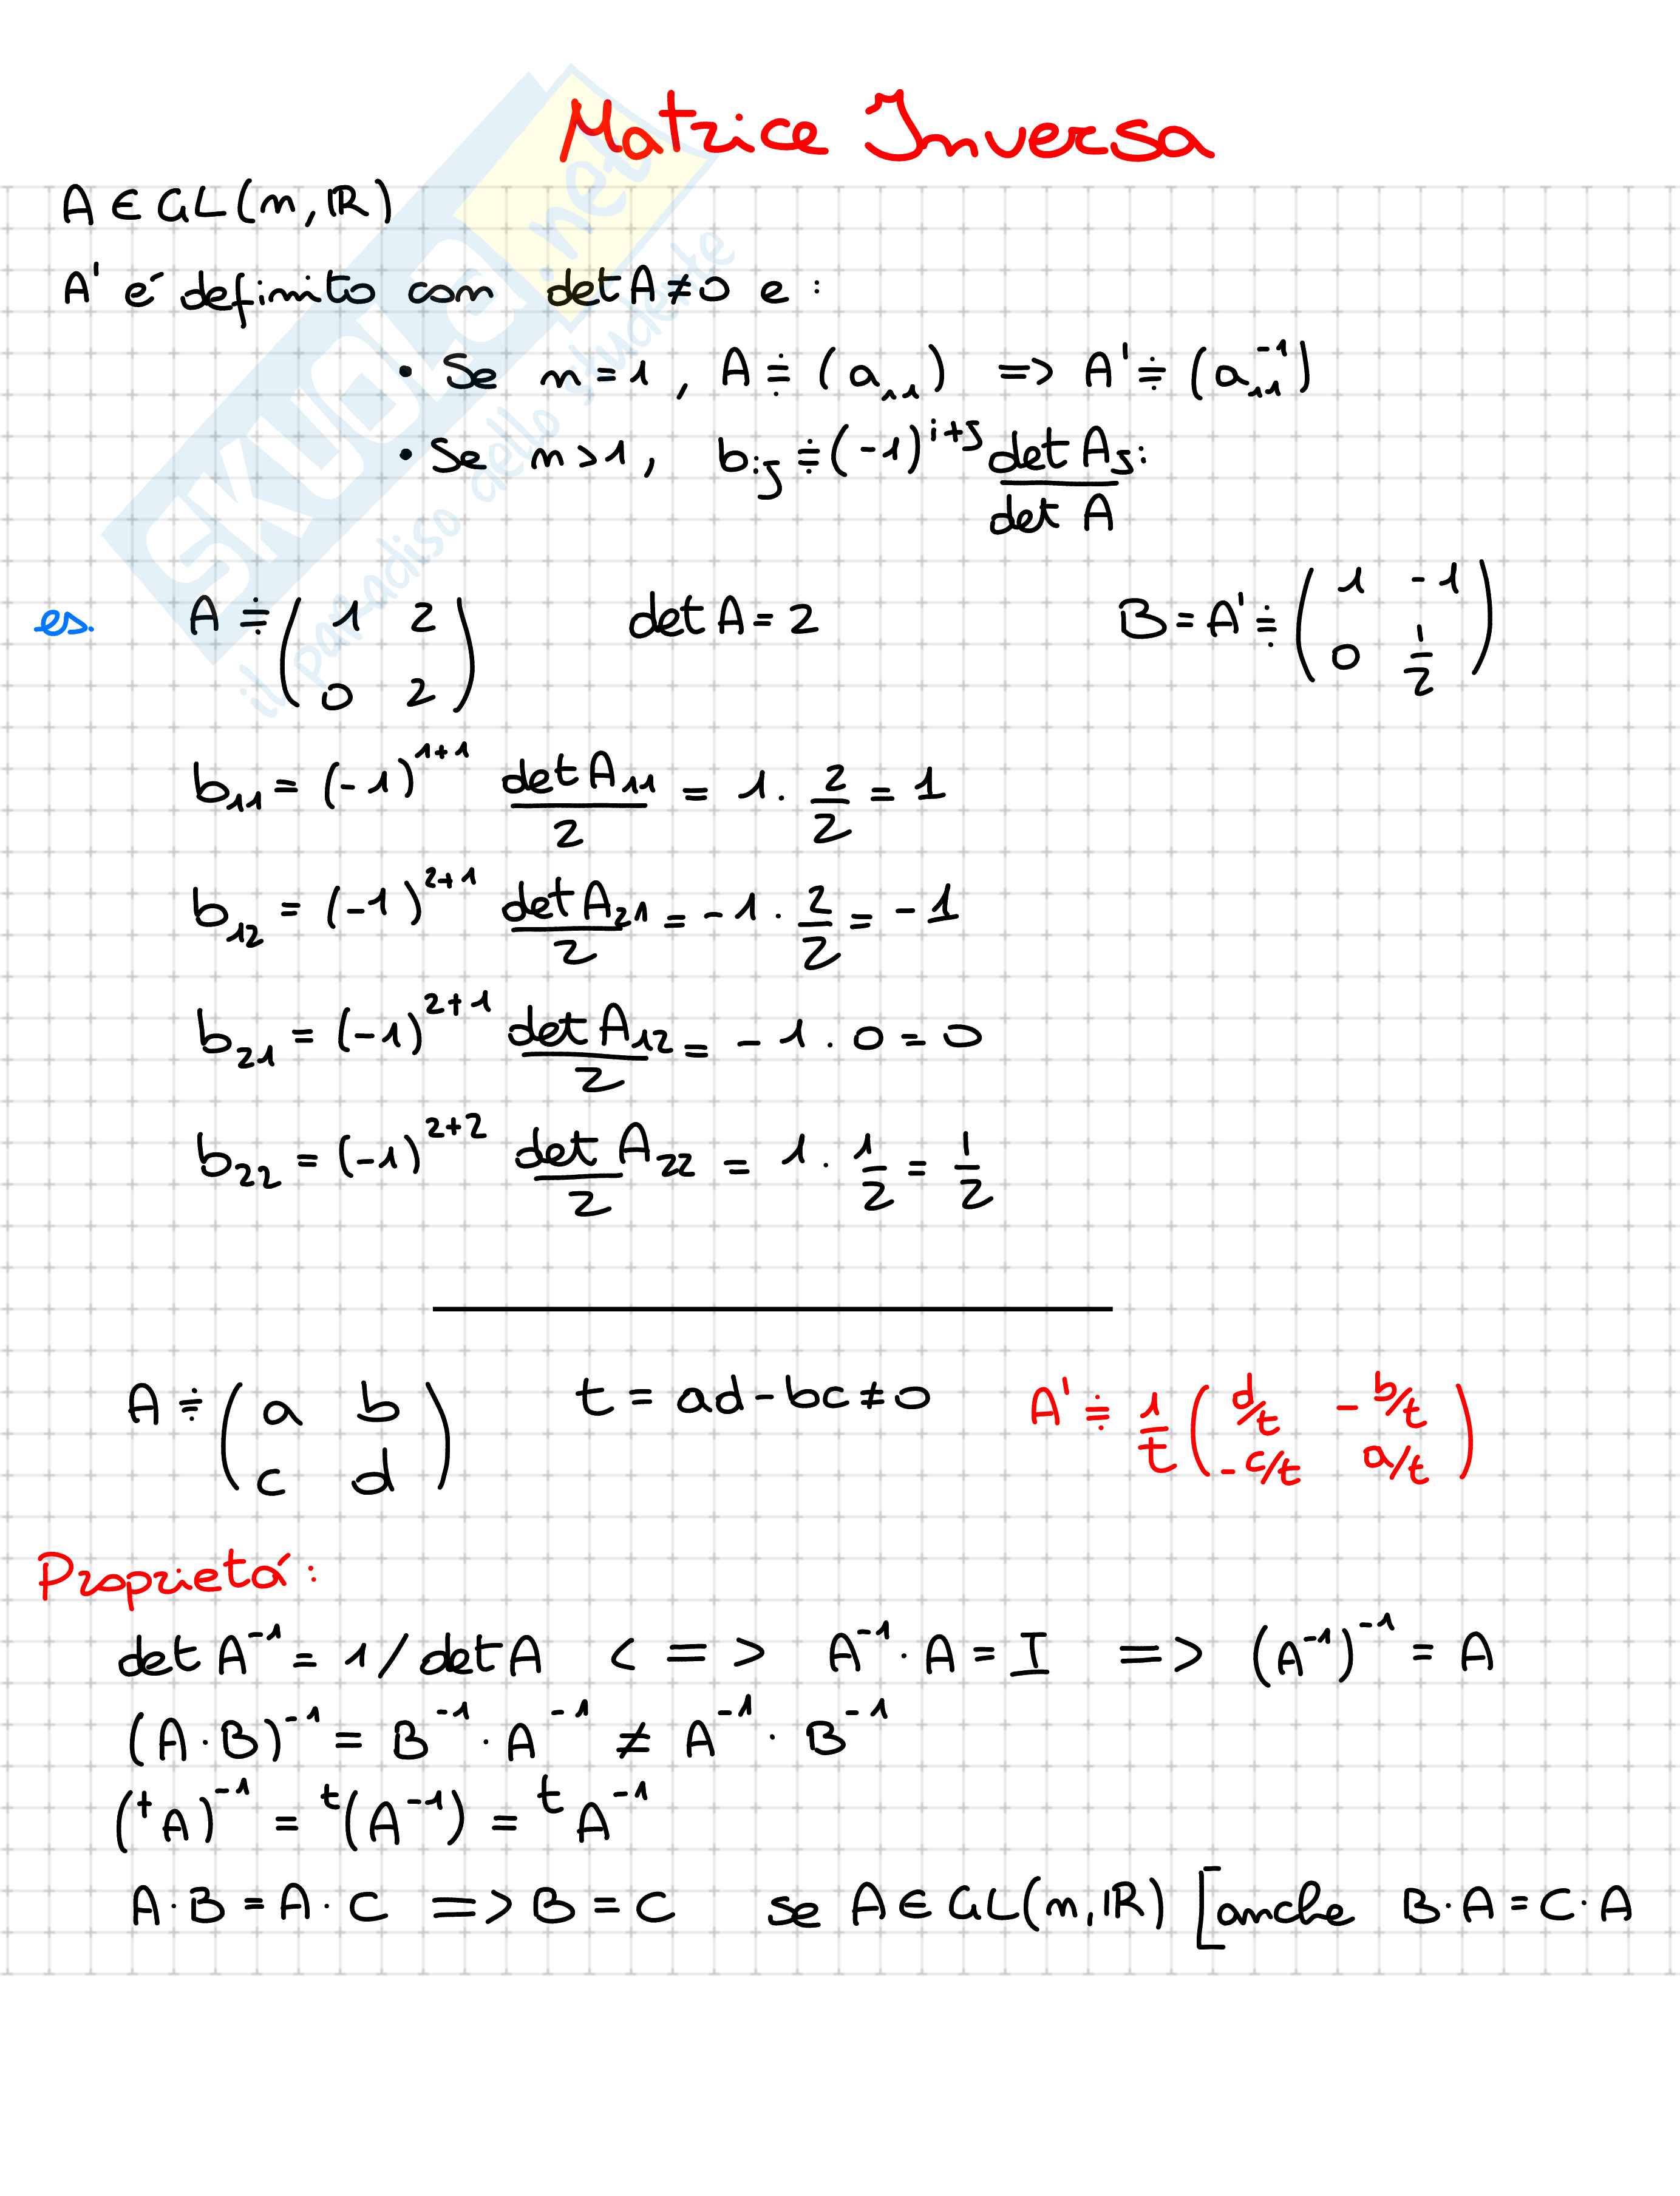 Matrice Inversa
A ∈ GL(n, ℝ)
A' é definito con det A ≠ 0 e :
• Se n = 1 , A ≑ (a₁₁) => A' ≑ (a₁₁⁻¹)
• Se n > 1 , bᵢⱼ ≑ (-1)ⁱ⁺ʲ det Aⱼᵢ / det A
es. A ≑ ( 1 2 ; 0 2 ) det A = 2 B = A' ≑ ( 1 -1 ; 0 1/2 )
b₁₁ = (-1)¹⁺¹ det A₁₁ / 2 = 1 · 2/2 = 1
b₁₂ = (-1)²⁺¹ det A₂₁ / 2 = -1 · 2/2 = -1
b₂₁ = (-1)²⁺¹ det A₁₂ / 2 = -1 · 0 = 0
b₂₂ = (-1)²⁺² det A₂₂ / 2 = 1 · 1/2 = 1/2
A ≑ ( a b ; c d ) t = ad - bc ≠ 0 A' ≑ 1/t ( d/t -b/t ; -c/t a/t )
Proprietá:
det A⁻¹ = 1 / det A <=> A⁻¹ · A = I => (A⁻¹)⁻¹ = A
(A · B)⁻¹ = B⁻¹ · A⁻¹ ≠ A⁻¹ · B⁻¹
(ᵗA)⁻¹ = ᵗ(A⁻¹) = ᵗA⁻¹
A · B = A · C => B = C se A ∈ GL(n, ℝ) [anche B · A = C · A
SKUOLA.net
il paradiso dello studente